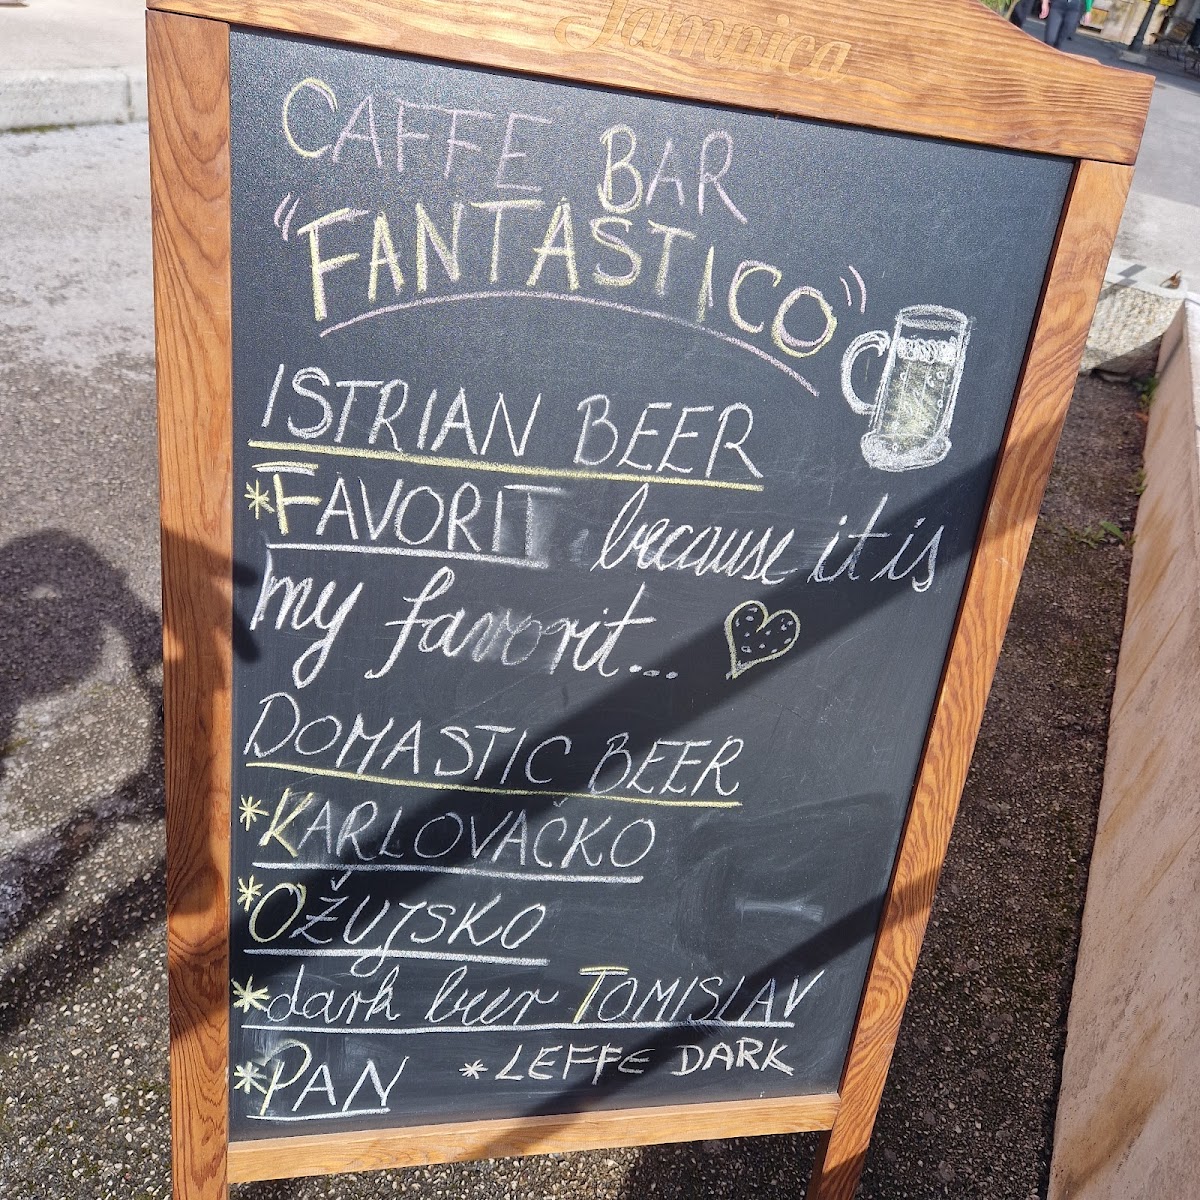 Jamnica
CAFFE BAR
"FANTASTICO"
ISTRIAN BEER
*FAVORIT because it is
my favorit...
DOMASTIC BEER
*KARLOVAČKO
*OŽUJSKO
*dark beer TOMISLAV
*PAN *LEFFE DARK